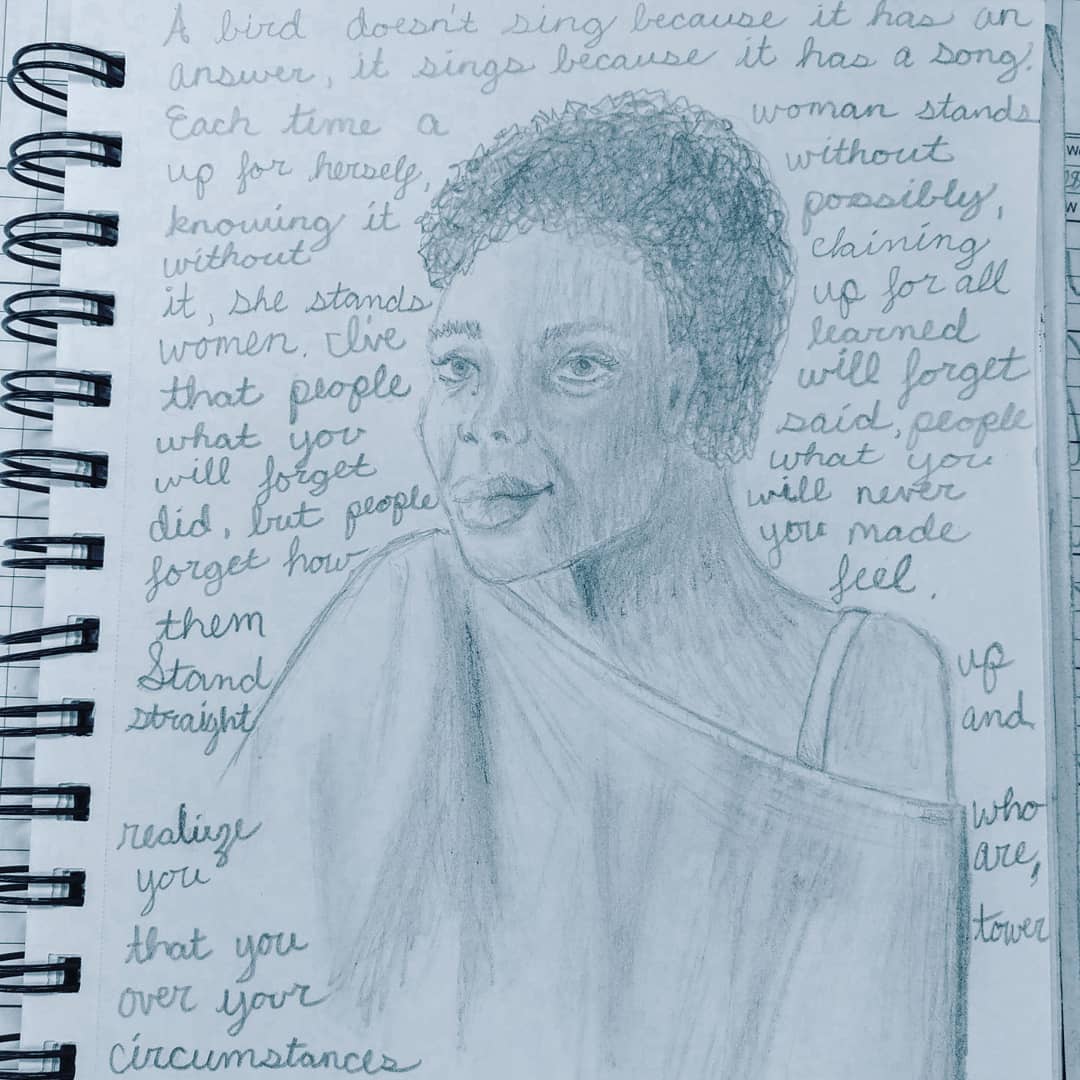 A bird doesn't sing because it has an
answer, it sings because it has a song.
Each time a woman stands
up for herself, without
knowing it possibly,
without claining
it, she stands up for all
women. I've learned
that people will forget
what you said, people
will forget what you
did, but people will never
forget how you made
them feel.
Stand up
straight and
realieze who
you are,
that you tower
over your
circumstances